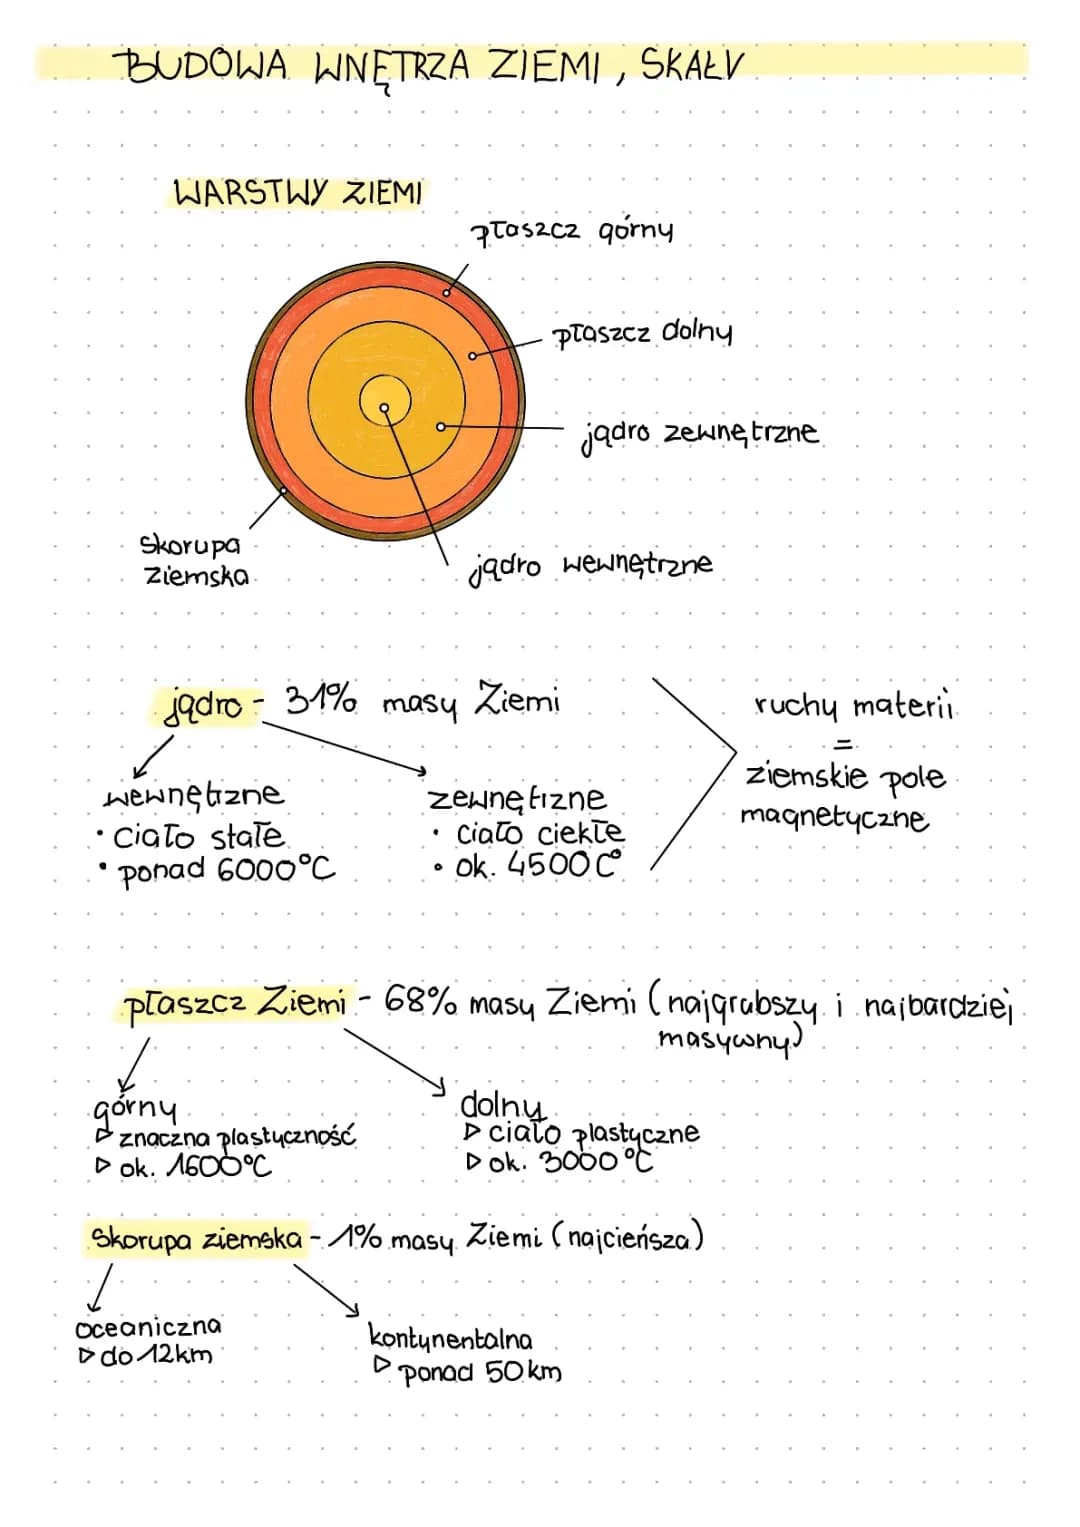 BUDOWA WNĘTRZA ZIEMI, SKAŁY
WARSTWY ZIEMI
płaszcz górny
płaszcz dolny
jądro zewnętrzne
Skorupa
Ziemska
jądro wewnętrzne
jądro - 31% masy Ziemi
wewnętrzne
• ciało stałe
• ponad 6000°C
zewnętrzne
• ciało ciekłe
• ok. 4500C°
ruchy materii
=
ziemskie pole
magnetyczne
płaszcz Ziemi - 68% masy Ziemi (najgrubszy i najbardziej
masywny)
górny
▷ znaczna plastyczność
▷ ok. 1600°C
dolny
▷ ciało plastyczne
▷ ok. 3000°C
Skorupa ziemska - 1% masy Ziemi (najcieńsza)
oceaniczna
▷ do 12km
kontynentalna
▷ ponad 50km